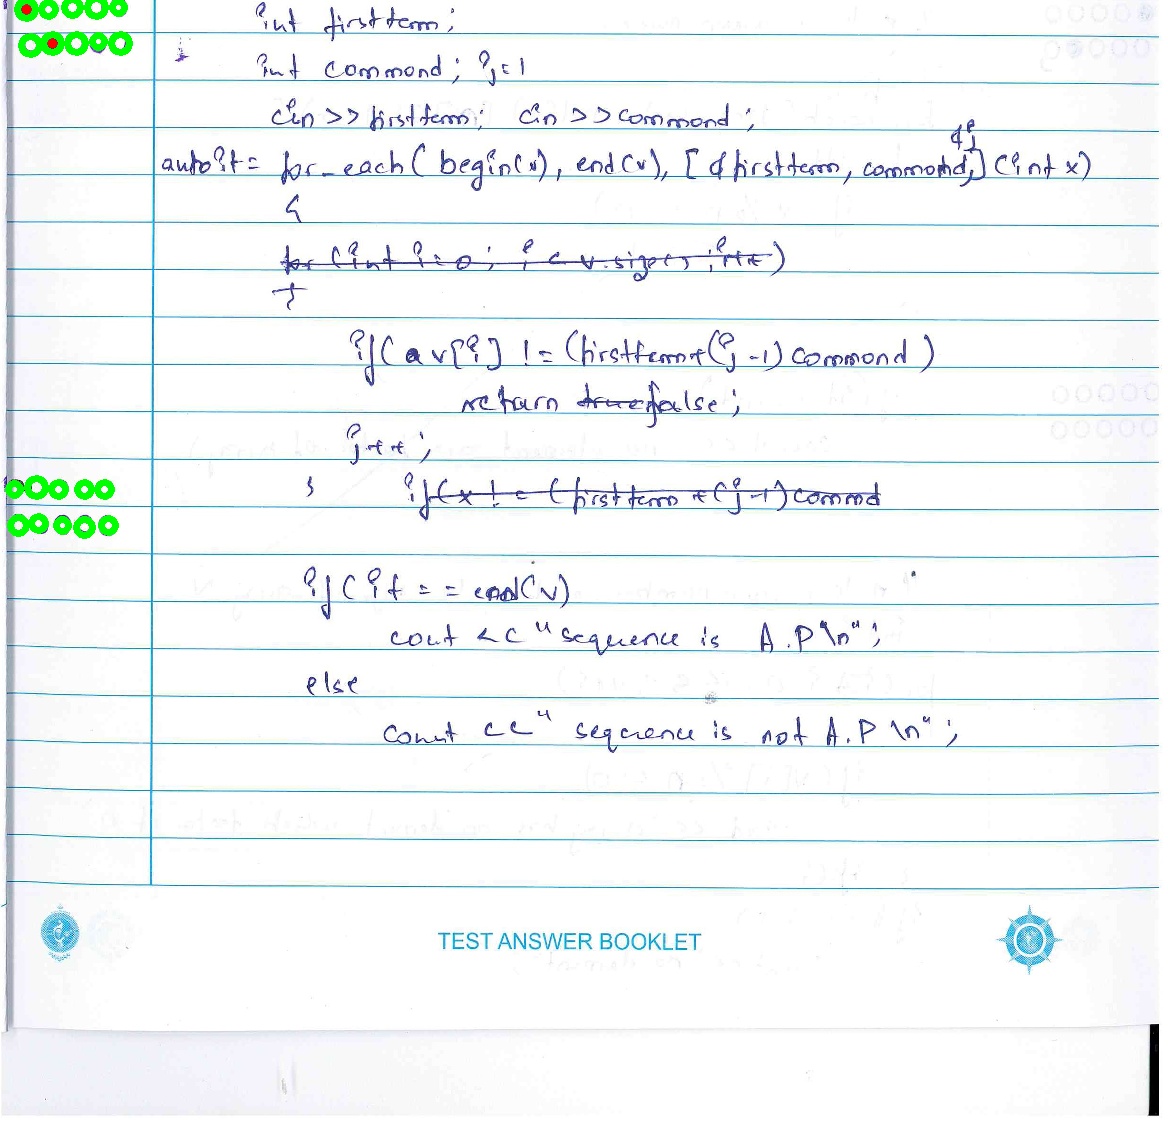 int firstterm;
int commond; j=1
cin >> firstterm; cin >> commond;
&j
auto it = for_each( begin(v), end(v), [ &firstterm, commond,] (int x)
{
for (int i=0; i < v.size(); i++)
{
if( a v[i] != (firstterm+(j-1) commond )
return true false;
j++;
} if(x != (firstterm +(j-1) commnd
if( it == end(v)
cout << "sequence is A.P \n";
else
cout << " sequence is not A.P \n";
TEST ANSWER BOOKLET